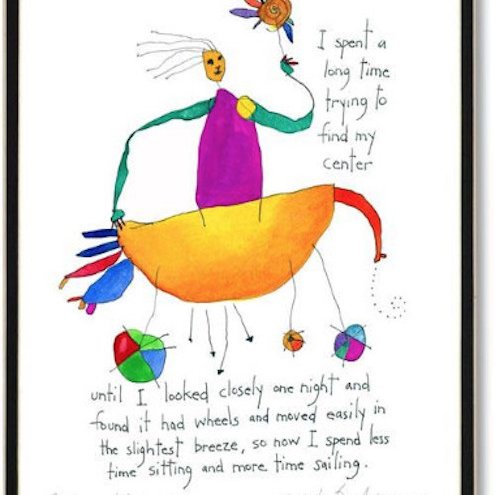 I spent a
long time
trying to
find my
center
until I looked closely one night and
found it had wheels and moved easily in
the slightest breeze, so now I spend less
time sitting and more time sailing.